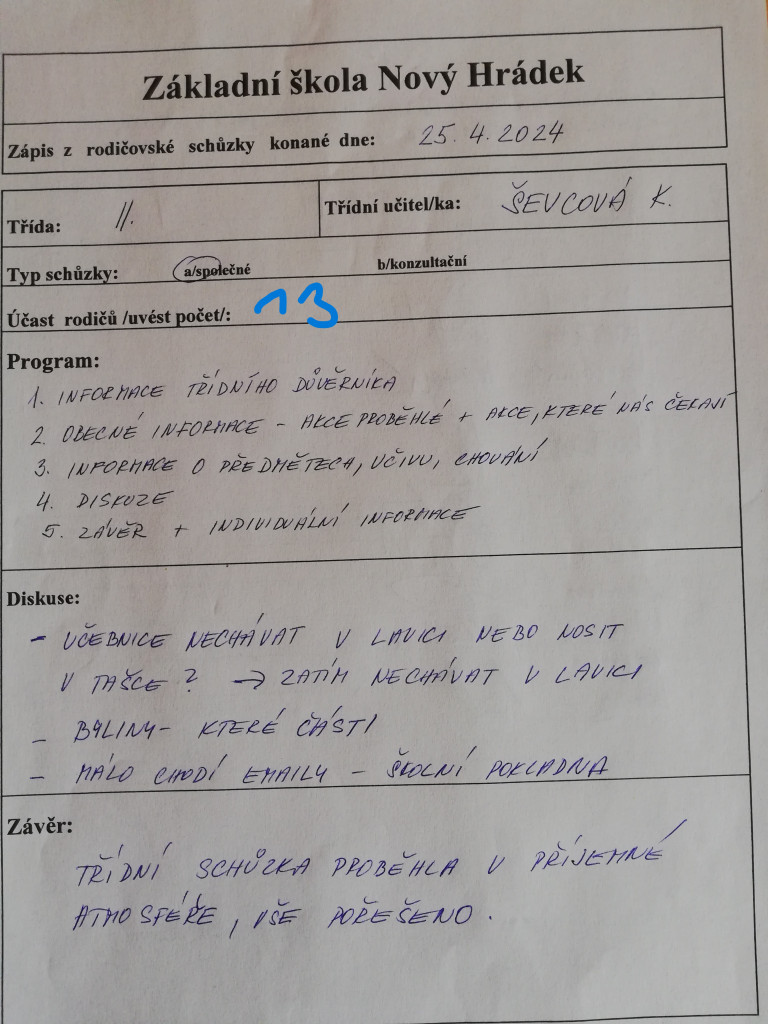 Základní škola Nový Hrádek
Zápis z rodičovské schůzky konané dne: 25.4.2024
Třída: II. Třídní učitel/ka: ŠEVCOVÁ K.
Typ schůzky: a/společné b/konzultační
Účast rodičů /uvést počet/: 13
Program:
1. INFORMACE TŘÍDNÍHO DŮVĚRNÍKA
2. OBECNÉ INFORMACE - AKCE PROBĚHLÉ + AKCE, KTERÉ NÁS ČEKAJÍ
3. INFORMACE O PŘEDMĚTECH, UČIVU, CHOVÁNÍ
4. DISKUZE
5. ZÁVĚR + INDIVIDUÁLNÍ INFORMACE
Diskuse:
- UČEBNICE NECHÁVAT V LAVICI NEBO NOSIT
V TAŠCE? → ZATÍM NECHÁVAT V LAVICI
- BYLINY - KTERÉ ČÁSTI
- MÁLO CHODÍ EMAILY - ŠKOLNÍ POKLADNA
Závěr:
TŘÍDNÍ SCHŮZKA PROBĚHLA V PŘÍJEMNÉ
ATMOSFÉŘE, VŠE POŘEŠENO.